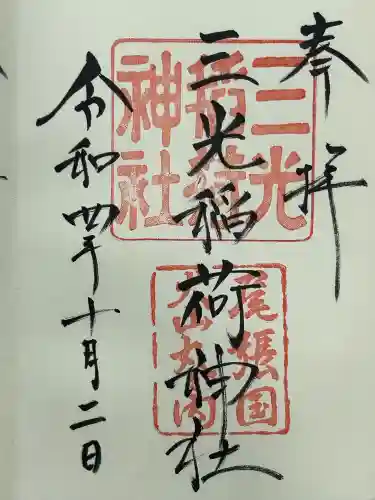 奉拝
三光稲荷神社
令和四年十月二日
三光
稲荷
神社
尾張国
犬山城内